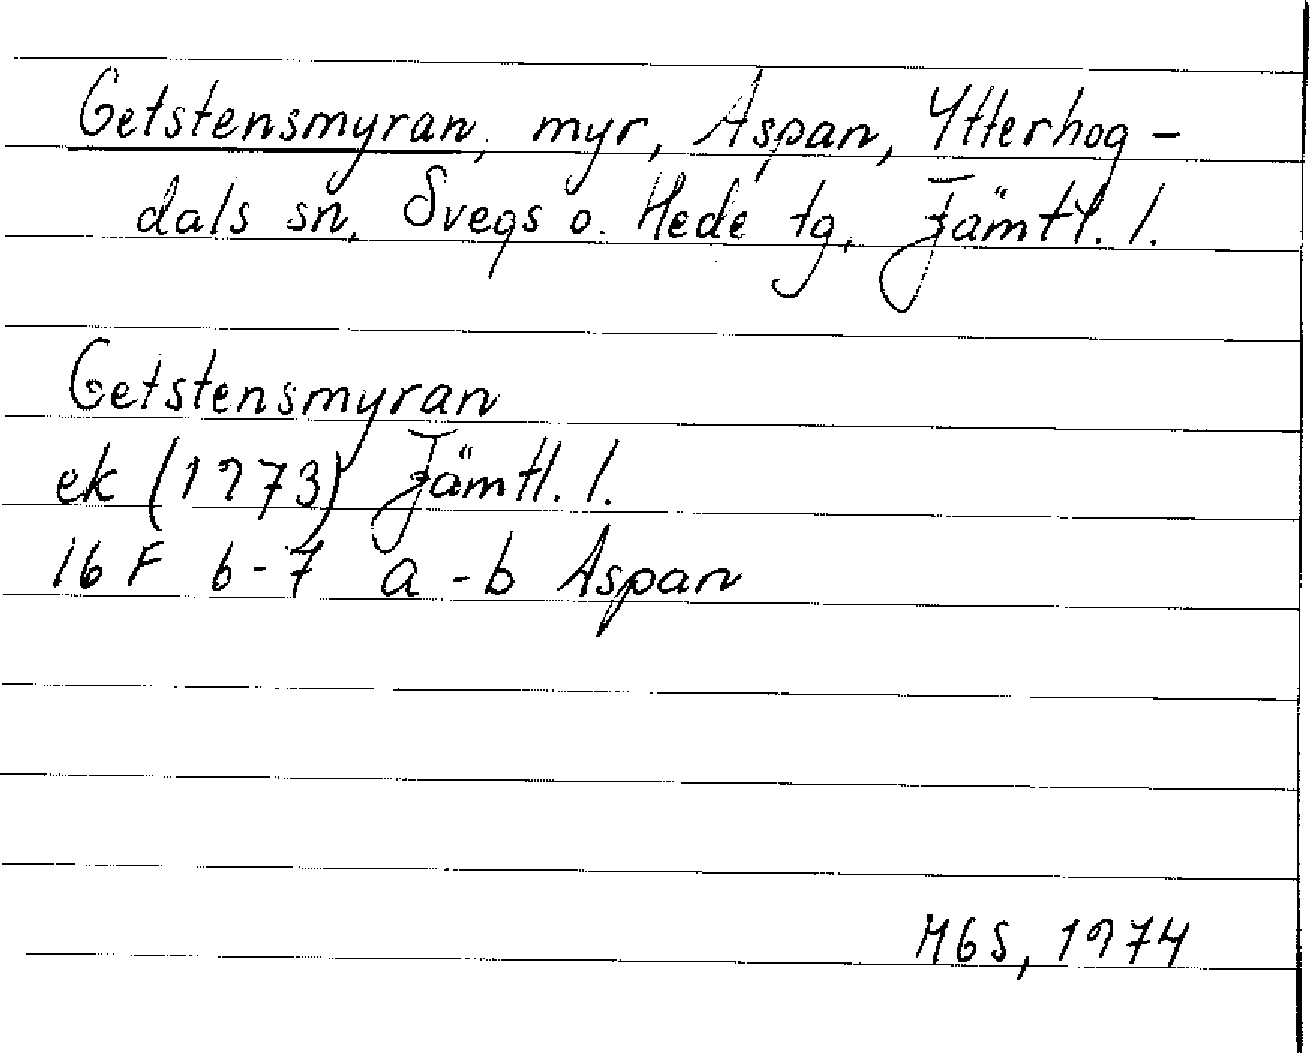 Getstensmyran, myr, Aspan, Ytterhog-
dals sn, Svegs o. Hede tg, Jämtl. l.
Getstensmyran
ek (1973) Jämtl. l.
16 F 6-7 a-b Aspan
MGS, 1974